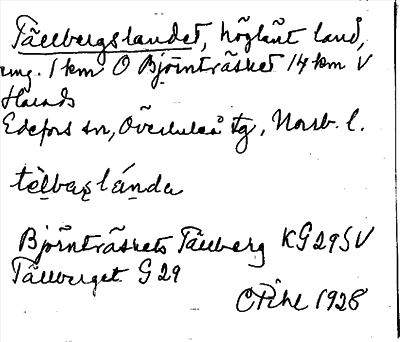 Tällbergslandet, höglänt land,
omg. 1 km O Björnträsket 14 km V
Harads
Edefors sn, Överluleå tg, Norrb. l.
Björnträskets Tällberg KG 29 SV
Tällberget G 29
C Pihl 1928